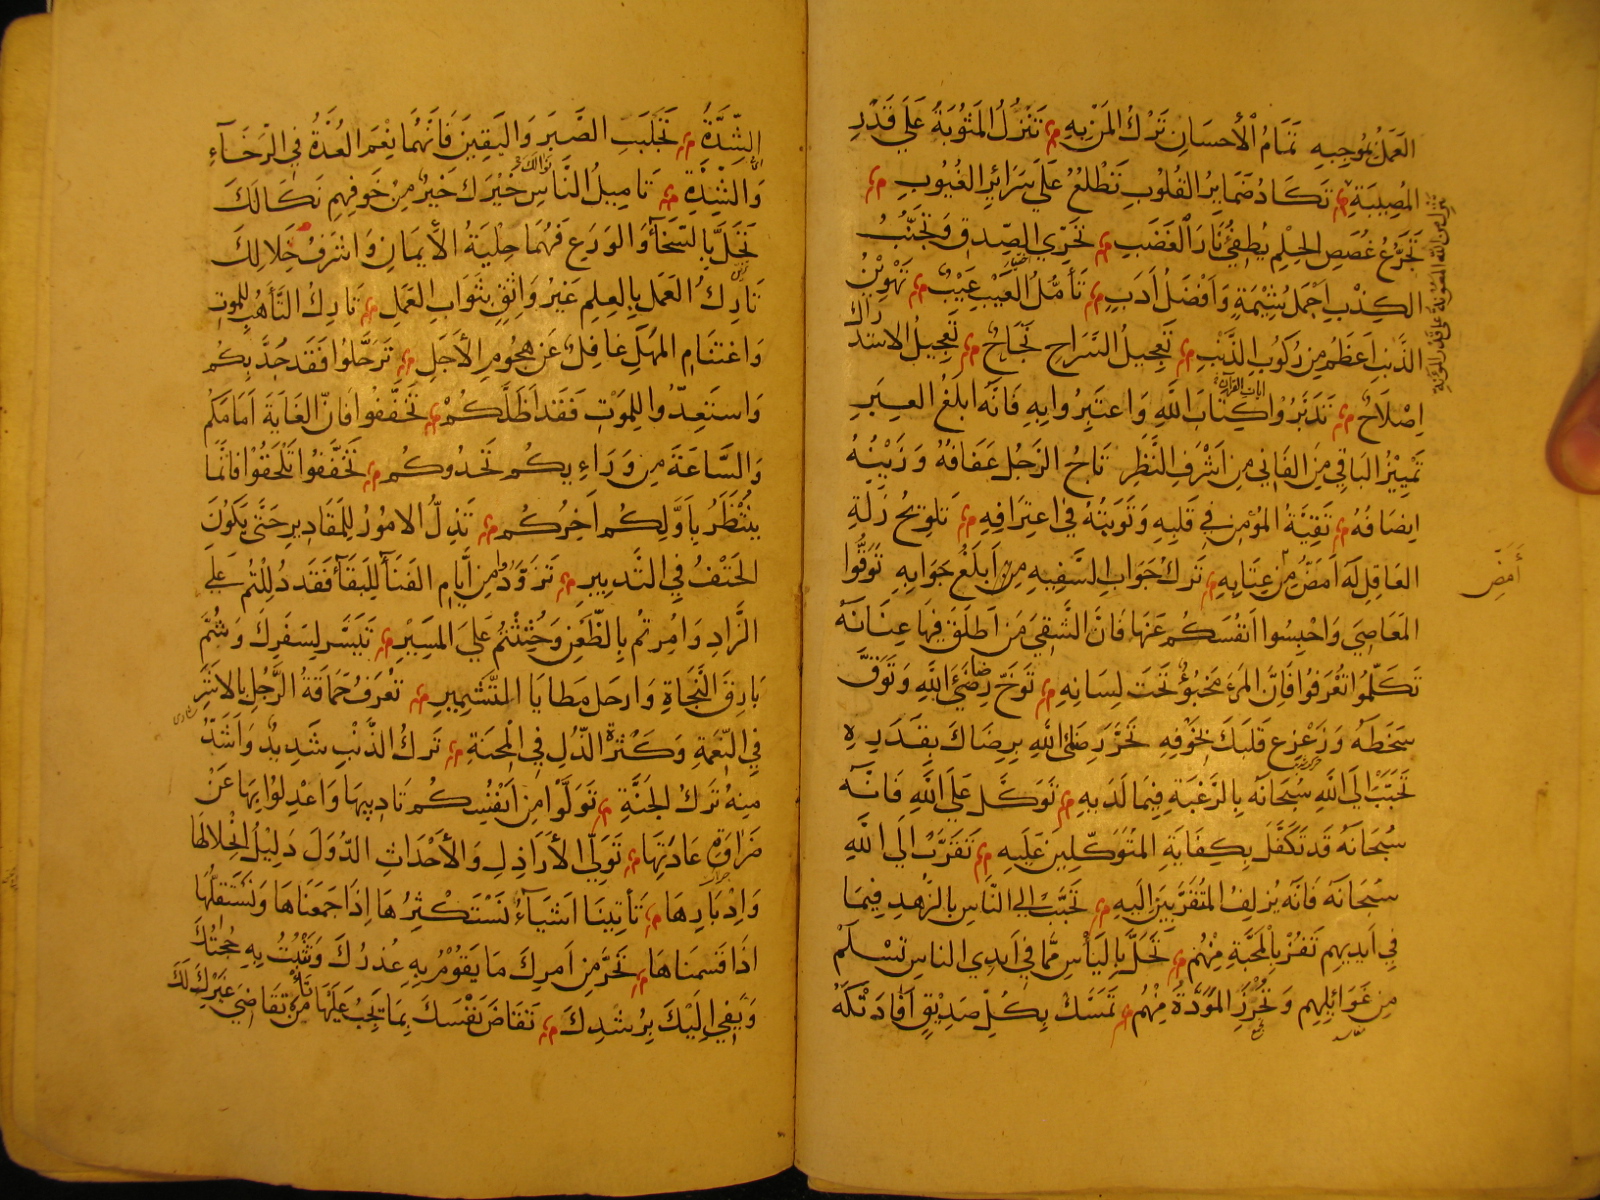 العَمَلُ بِمُوجِبِهِ تَمَامُ الْأِحسَانِ تَرْكُ المَنِّ بِهِ تَنْزِلُ المَثُوبَةُ عَلَى قَدْرِ
المُصِيبَةِ تَكَادُ ضَمَايِرُ القُلُوبِ تَطْلِعُ عَلَى سَرَائِرِ الغُيُوبِ
تَجَرُّعُ غُصَصِ الحِلْمِ يُطفِئُ نَارَ الْغَضَبِ تَحَرِّي الصِّدقِ وَتَجَنُّبُ
الكِذْبِ اَجْمَلُ شِيْمَةٍ وَاَفْضَلُ اَدَبٍ تَأَمُّلُ العَيْبِ عَيْبٌ تَهْوِيْنُ
الذَّنْبِ اَعْظَمُ مِن رُكُوبِ الذَّنْبِ تَعجِيلُ السَّرَاحِ نَجَاحٌ تَعجِيلُ الاستد
راك
اِصْلَاحٌ تَدَبَّرُوا كِتَابَ اللَّهِ وَاعتَبِرُوا بِهِ فَاِنَّهُ اَبلَغُ العِبَرِ
ايات القرآن
تَمْيِيْزُ البَاقِي مِنَ الفَانِي مِن اَشْرَفِ النَّظَرِ تَاجُ الرَجُلِ عَفَافُهُ وَزَيْنُهُ
اِنصَافُهُ تَقِيَّةُ المُؤْمِنِ فِي قَلبِهِ وَتَوبَتُهُ فِي اعتِرَافِهِ تَلوِيحُ زَلَّةِ
العَاقِلِ لَهُ اَمَضُّ مِنْ عِتَابِهِ تَركُ جَوَابِ السَّفِيهِ مِن اَبلَغِ جَوَابِهِ تَوَقُّوا
المَعَاصِيَ وَاحْبِسُوا اَنفُسَكُم عَنْهَا فَاِنَّ الشَّقِيَّ مَن اَطلَقَ فِيهَا عِنَانَهُ
تَكَلَّمُوا تُعْرَفُوا فَاِنَّ المَرْءَ مَخْبُوٌّ تَحتَ لِسَانِهِ تَوَخَّ رِضَى اللَّهِ وَتَوَقَّ
سَخَطَهُ وَزَعْزِع قَلبَكَ بِخَوْفِهِ تَحَرَّ رِضَى اللَّهِ بِرِضَاكَ بِقَدَرِهِ
تَحَبَّبْ اِلَى اللَّهِ سُبْحَانَهُ بِالرَّغْبَةِ فِيمَا لَدَيهِ تَوَكَّل عَلَى اللَّهِ فَاِنَّهُ
سُبْحَانَهُ قَد تَكَفَّلَ بِكِفَايَةِ المُتَوَكِّلِينَ عَلَيهِ تَقَرَّبْ اِلَى اللَّهِ
سُبحَانَهُ فَاِنَّهُ يُزلِفُ المُتَقَرِّبِينَ اِلَيهِ تَحَبَّبْ اِلَى النَّاسِ بِالزُّهدِ فِيمَا
فِي اَيدِيهِم تَفُزْ بِالْمَحَبَّةِ مِنْهُم تَحَلَّ بِاليَأْسِ مِمَّا فِي اَيدِي النَاسِ تَسْلَمْ
مِن غَوَائِلِهِم وَتُحْرِزِ المَوَدَّةَ مِنْهُم تَمَسَّكْ بِكُلِّ صَدِيْقٍ اَفَادَتْكَهُ
تنزل من اللّه المئونة على قدر المؤنة
أَمَضّ
الشِّدَّةُ تَجَلبَبِ الصَّبرَ وَاليَقِينَ فَاِنَّهُمَا نِعْمَ العُدَّةُ فِي الرَخَآءِ
وَالشِّدَّةِ تَامِيلُ النَّاسِ خَيْرَكَ خَيْرٌ مِنْ خَوفِهِم نَكَالَكَ
نَوَالَكَ
تَحَلَّ بِالسَّخَآءِ وَالوَرَعِ فَهُمَا حِليَةُ الأِيمَانِ وَاشرَفُ خِلَالِكَ
تَارِكُ العَمَلِ بِالعِلمِ غَيْرُ وَاثِقٍ بِثَوَابِ العَمَلِ تَارِكُ التَّأَهُّبِ لِلموتِ
وَاغتنَامِ المَهَلِ غَافِلٌ عَن هُجُومِ الأَجَلِ تَرَحَّلُوا فَقَد جُدَّ بِكُم
وَاستَعِدُّوا لِلمَوتِ فَقَد اَظَلَّكُمْ تَخَفَّفُوا فَاِنَّ الغَايَةَ اَمَامَكُم
وَالسَّاعَةَ مِن وَرَاءِ بِكُم تَحدُوكُم تَخَفَّفُوا تَلحَقُوا فَاِنَّمَا
يُنْتَظَرُ بِاَوَّلِكُم اَخِرُكُم تَذِلُّ الامُورُ لِلمَقَادِيرِ حَتَّى يَكُونَ
الحَتْفُ فِي التَّدبِيرِ تَزَوَّدُوا مِن اَيَّامِ الفَنَآءِ لِلبَقَآءِ فَقَد دُلِلتُم عَلَى
الزَّادِ وَاُمِرتُم بِالظَّعنِ وَحُثِثْتُم عَلَى المَسِيْرِ تَيَسَّر لِسَفَرِكَ وَشِمْ
بَارِقَ النَّجَاةِ وَارحَل مَطَايَا التَّشمِيرِ تُعْرَفُ حَمَاقَةُ الرَّجُلِ بِالاَشَرِ
فِي النِّعمَةِ وَكَثْرَةِ الذُّلِّ فِي المِحنَةِ تَركُ الذَّنبِ شَدِيدٌ وَاَشَدُّ
مِنهُ تَركُ الجَنَّةِ تَوَلَّوْا مِن اَنْفُسِكُم تَادِيبَهَا وَاعْدِلُوا بِهَا عَنْ
ضَرَاوَةِ عَادَتِهَا تَوَلِّي الأَرَاذِلِ وَالأَحْدَاثِ الدُّوَلَ دَلِيْلُ انْحِلَالِهَا
وَاِدْبَارِهَا تَأتِينَا اَشيَآءُ نَسْتَكْثِرُهَا اِذَا جَمَعنَاهَا وَنَسْتَقِلُّهَا
اِذَا قَسَمنَاهَا تَحَرَّ مِن اَمرِكَ مَا يَقُوْمُ بِهِ عُذرُكَ وَتَثْبُتُ بِهِ حُجَّتُكَ
وَيَفِي اِلَيْكَ بِرُشدِكَ تَقَاضَ نَفْسَكَ بِمَا يَجِبُ عَلَيْهَا تَأْمَنْ تَقَاضِيَ غَيْرِكَ لَكَ